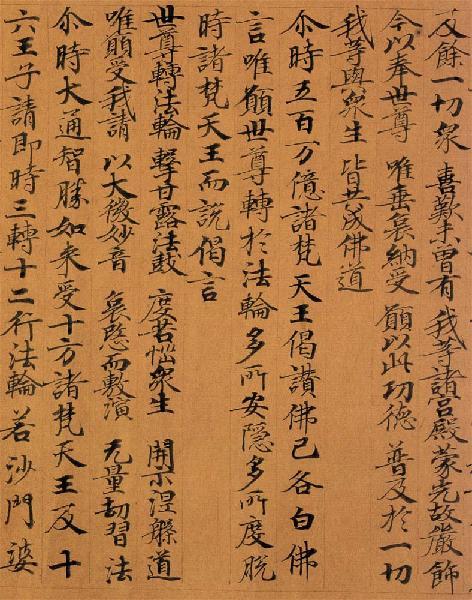 及餘一切衆 喜歎未曽有 我等諸宮殿 蒙光故嚴飾
今以奉世尊 唯垂哀納受 願以此功徳 普及於一切
我等與衆生 皆共成佛道
尒時五百万億諸梵天王偈讚佛已各白佛
言唯願世尊轉於法輪多所安隱多所度脱
時諸梵天王而說偈言
世尊轉法輪 擊甘露法鼓 度苦惱衆生 開示涅槃道
唯願受我請 以大微妙音 哀愍而敷演 无量劫習法
尒時大通智勝如来受十方諸梵天王及十
六王子請即時三轉十二行法輪若沙門婆